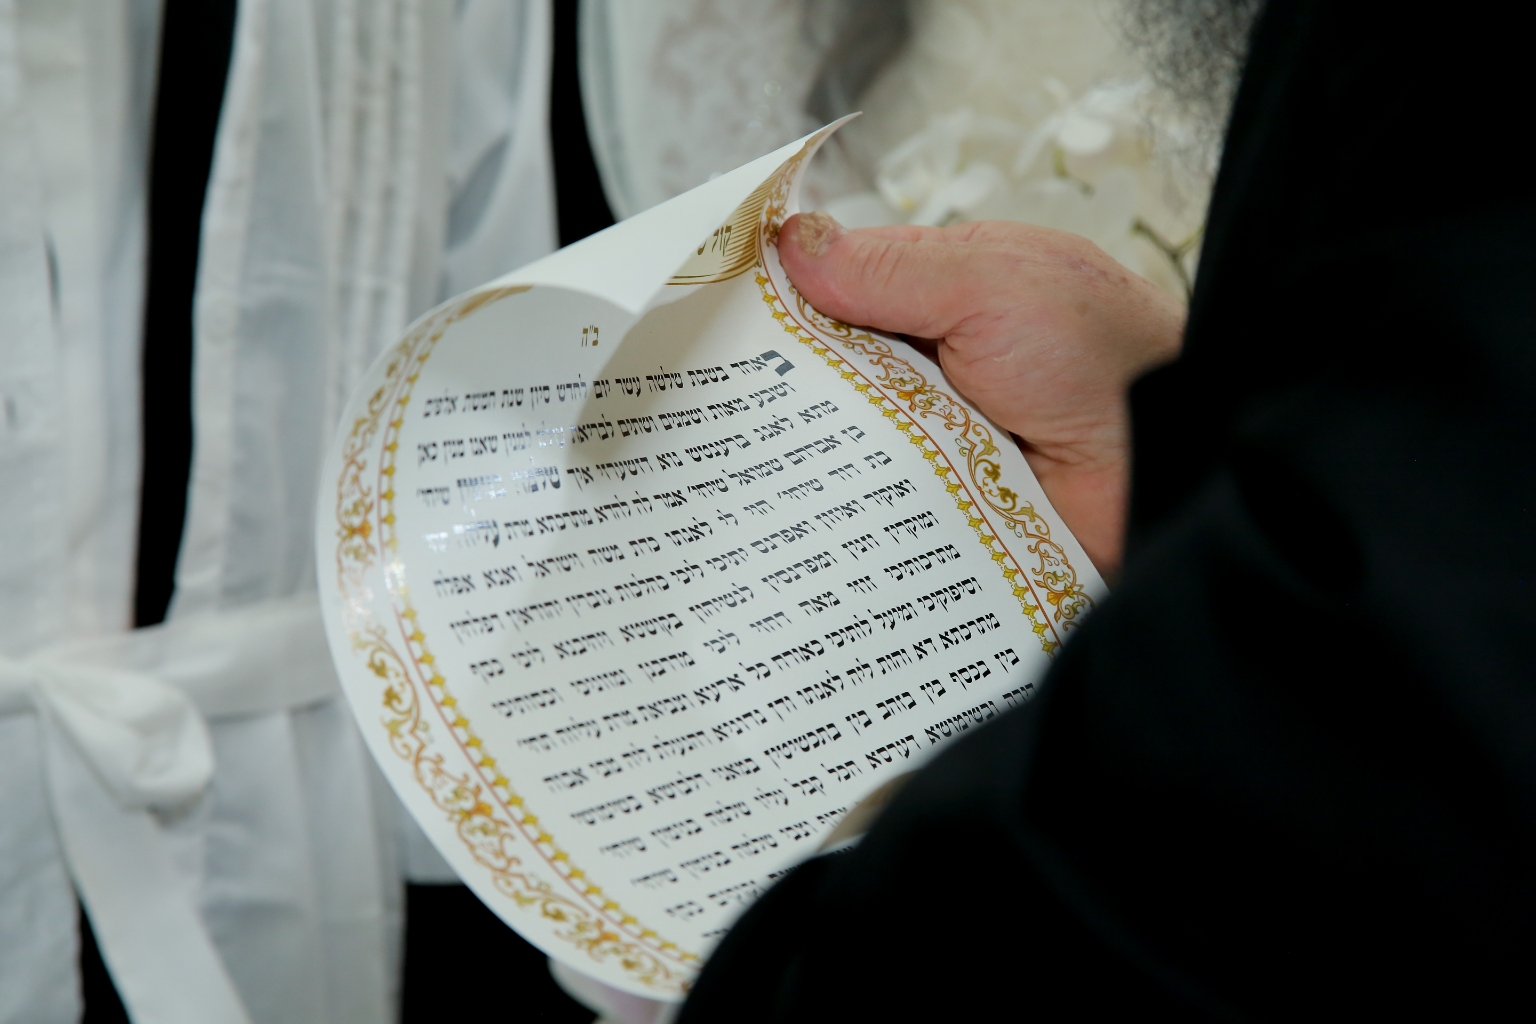 קול ש
ב"ה
באחד בשבת שלשה עשר יום לחדש סיון שנת חמשת אלפים
ושבע מאות ושמנים ושתים לבריאת עולם למנין שאנו מנין כאן
מתא לאנג ברענטש נוא דזשערזי איך שלמה בנימין שיחי'
בן אברהם שמואל שיחי' אמר לה להדא מתרכתא מרת עליזה
בת דוד שיחי' הוי לי לאנתו כדת משה וישראל ואנא אפלח
ואוקיר ואיזון ואפרנס יתיכי ליכי כהלכות גוברין יהודאין דפלחין
ומוקרין וזנין ומפרנסין לנשיהון בקושטא ויהיבנא ליכי כסף
מתרכותיכי זוזי מאה דחזי ליכי מדרבנן ומזוניכי וכסותיכי
וסיפוקיכי ומיעל לותיכי כאורח כל ארעא וצביאת מרת עליזה תחי'
מתרכתא דא והות ליה לאנתו ודן נדוניא דהנעלת ליה מבי אבוה
בין בכסף בין בזהב בין בתכשיטין במאני דלבושא בשימושי
דירה ובשימושא דערסא הכל קבל עליו שלמה בנימין שיחי'
וצבי שלמה בנימין שיחי'
כסף